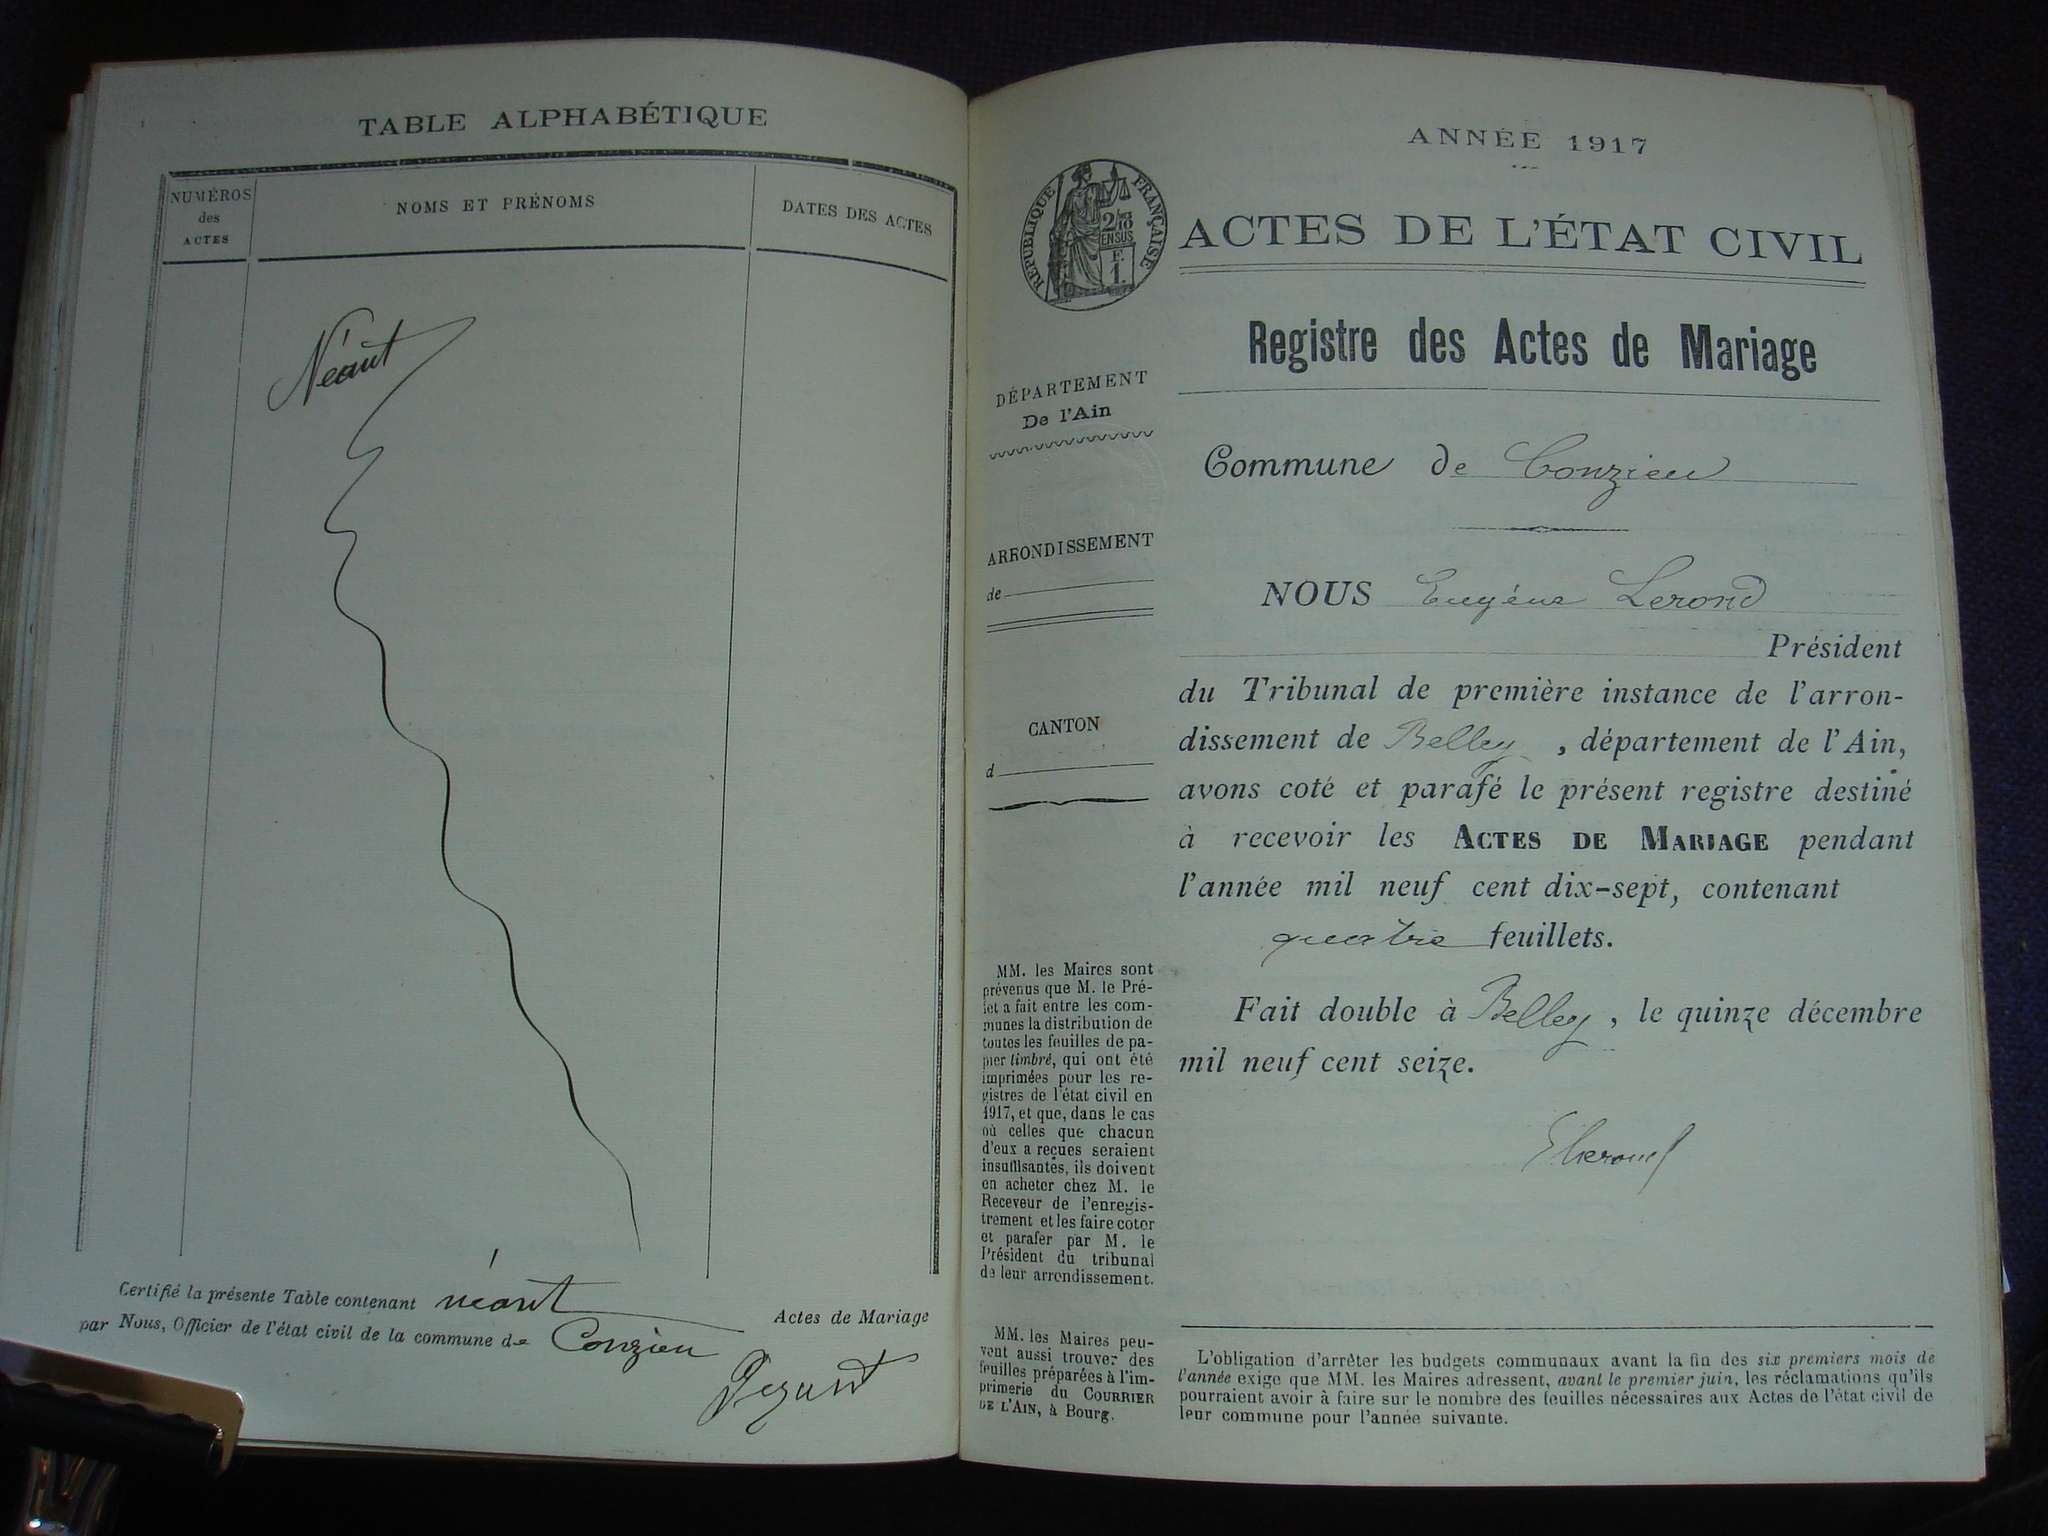 TABLE ALPHABÉTIQUE
NUMÉROS
des
ACTES
NOMS ET PRÉNOMS
DATES DES ACTES
Néant
Certifié la présente Table contenant néant Actes de Mariage
par Nous, Officier de l'état civil de la commune de Conzieu
ANNÉE 1917
RÉPUBLIQUE FRANÇAISE
2/10
EN SUS
F.
1.
ACTES DE L'ÉTAT CIVIL
Registre des Actes de Mariage
DÉPARTEMENT
De l'Ain
ARRONDISSEMENT
de
CANTON
d
MM. les Maires sont
prévenus que M. le Pré-
fet a fait entre les com-
munes la distribution de
toutes les feuilles de pa-
pier timbré, qui ont été
imprimées pour les re-
gistres de l'état civil en
1917, et que, dans le cas
où celles que chacun
d'eux a reçues seraient
insuffisantes, ils doivent
en acheter chez M. le
Receveur de l'enregis-
trement et les faire coter
et parafer par M. le
Président du tribunal
de leur arrondissement.
MM. les Maires peu-
vent aussi trouver des
feuilles préparées à l'im-
primerie du COURRIER
DE L'AIN, à Bourg.
Commune de Conzieu
NOUS Eugène Lerond
Président
du Tribunal de première instance de l'arron-
dissement de Belley, département de l'Ain,
avons coté et parafé le présent registre destiné
à recevoir les ACTES DE MARIAGE pendant
l'année mil neuf cent dix-sept, contenant
quatre feuillets.
Fait double à Belley, le quinze décembre
mil neuf cent seize.
ELerond
L'obligation d'arrêter les budgets communaux avant la fin des six premiers mois de
l'année exige que MM. les Maires adressent, avant le premier juin, les réclamations qu'ils
pourraient avoir à faire sur le nombre des feuilles nécessaires aux Actes de l'état civil de
leur commune pour l'année suivante.